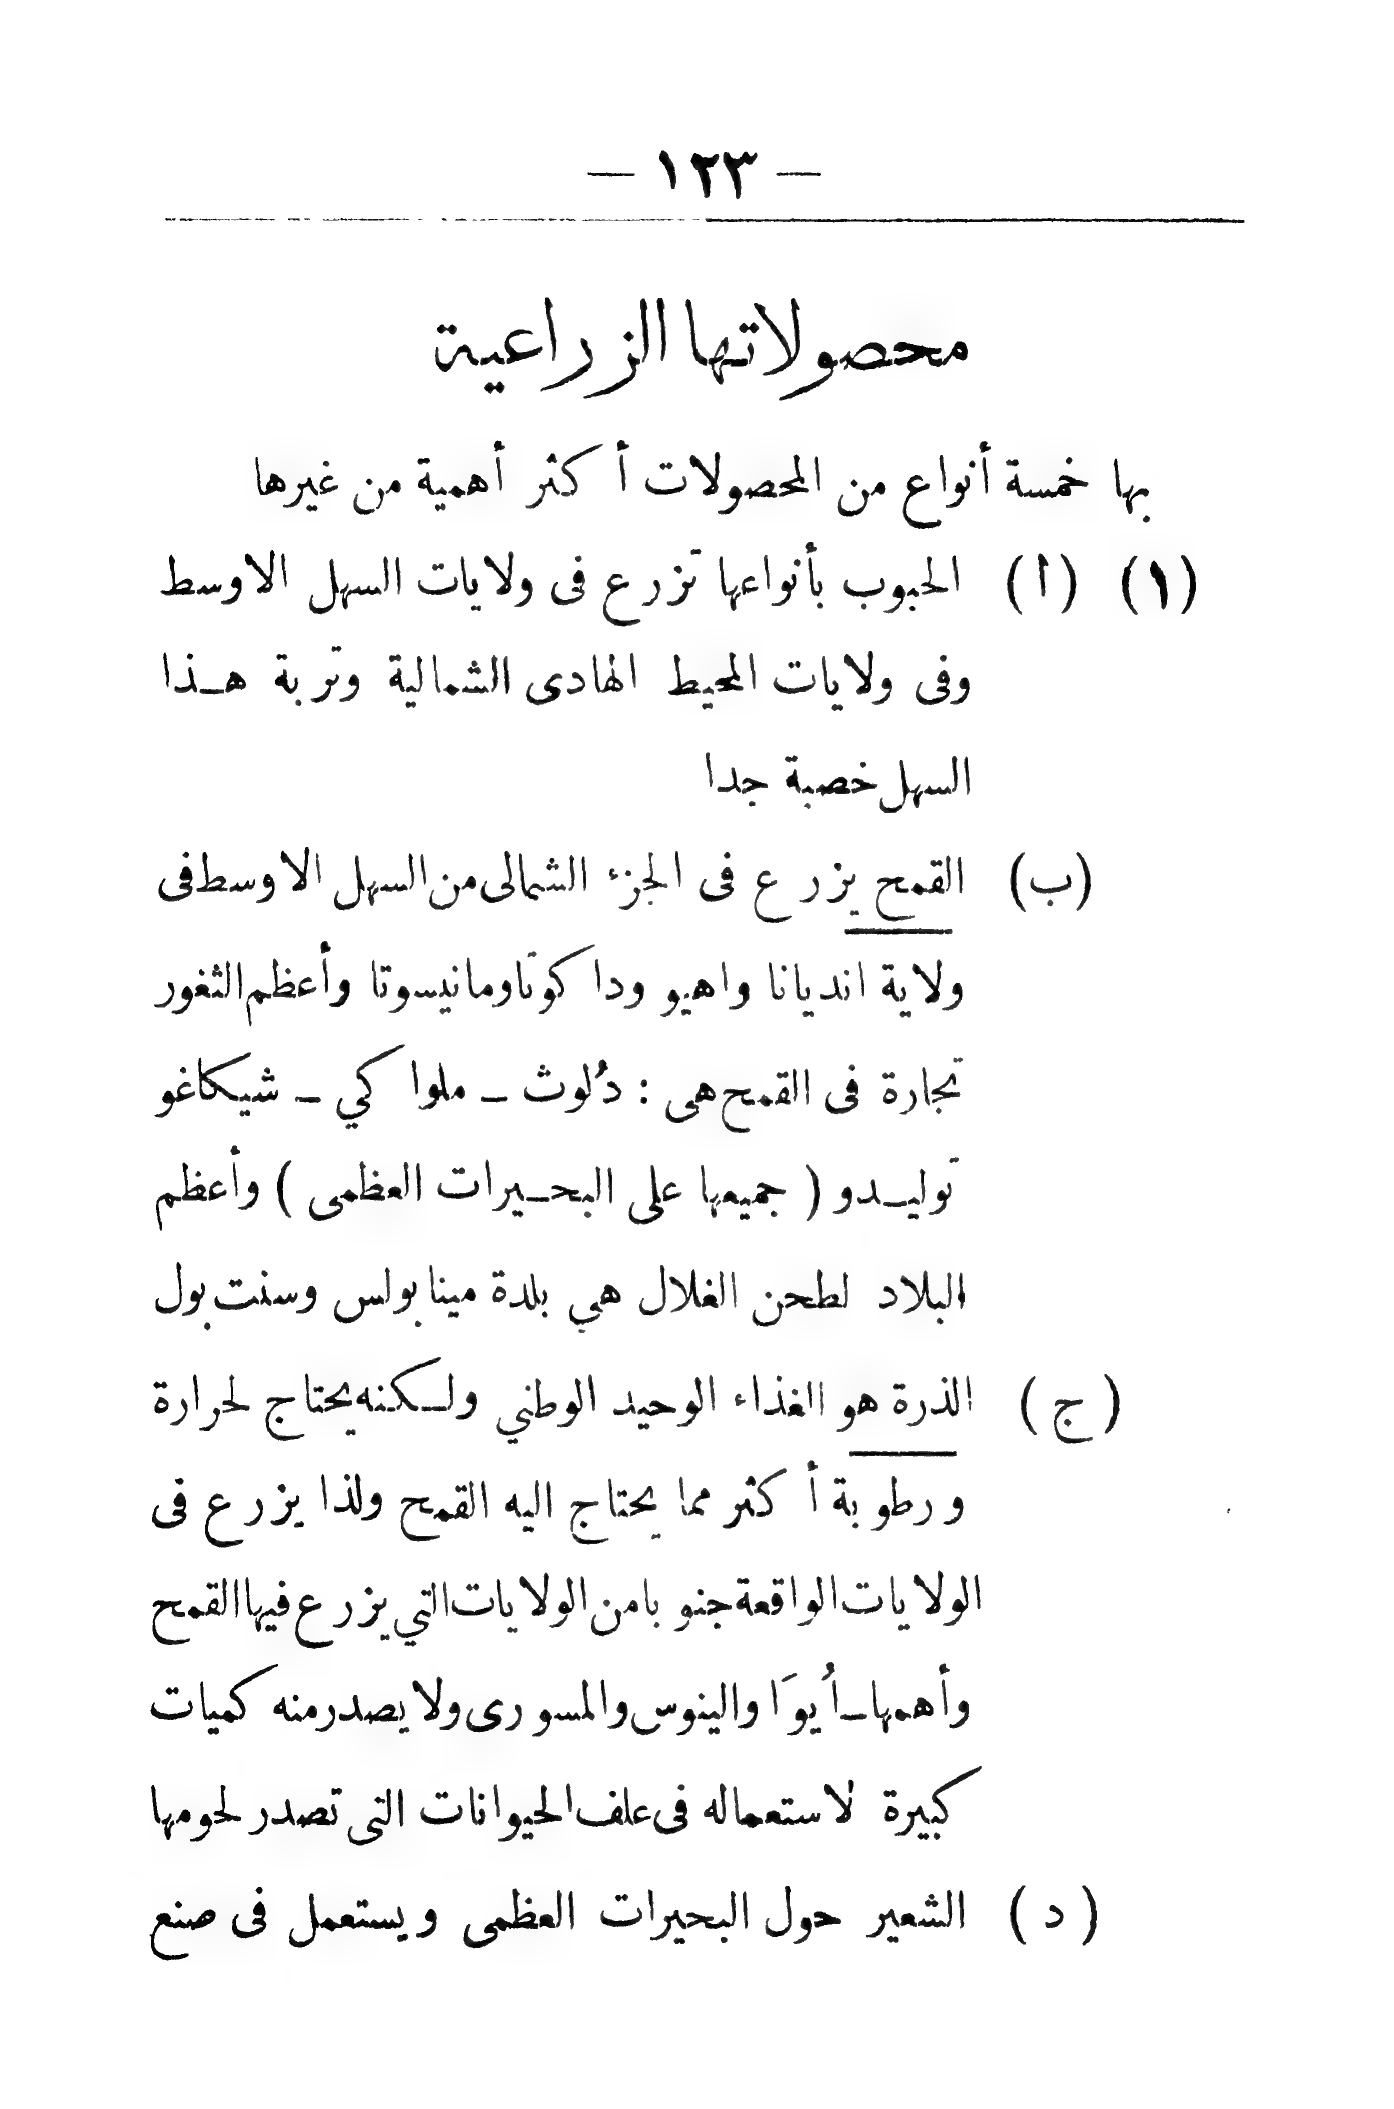 — ١٢٣ —
محصولاتها الزراعية
بها خمسة أنواع من المحصولات أكثر أهمية من غيرها
(١) (أ) الحبوب بأنواعها تزرع فى ولايات السهل الاوسط
وفى ولايات المحيط الهادى الشمالية وتربة هـذا
السهل خصبة جدا
(ب) القمح يزرع فى الجزء الشمالى من السهل الاوسط فى
ولاية انديانا واهيو وداكوتا ومانيسوتا وأعظم الثغور
تجارة فى القمح هى : دُلوث ـ ملواكي ـ شيكاغو
توليـدو ( جميعها على البحـيرات العظمى ) وأعظم
البلاد لطحن الغلال هي بلدة مينابولس وسنت بول
(ج) الذرة هو الغذاء الوحيد الوطني ولـكنه يحتاج لحرارة
ورطوبة أكثر مما يحتاج اليه القمح ولذا يزرع فى
الولايات الواقعة جنوبا من الولايات التي يزرع فيها القمح
وأهمها ـ أُيوَا والينوس والمسورى ولا يصدر منه كميات
كبيرة لاستعماله فى علف الحيوانات التى تصدر لحومها
(د) الشعير حول البحيرات العظمى ويستعمل فى صنع